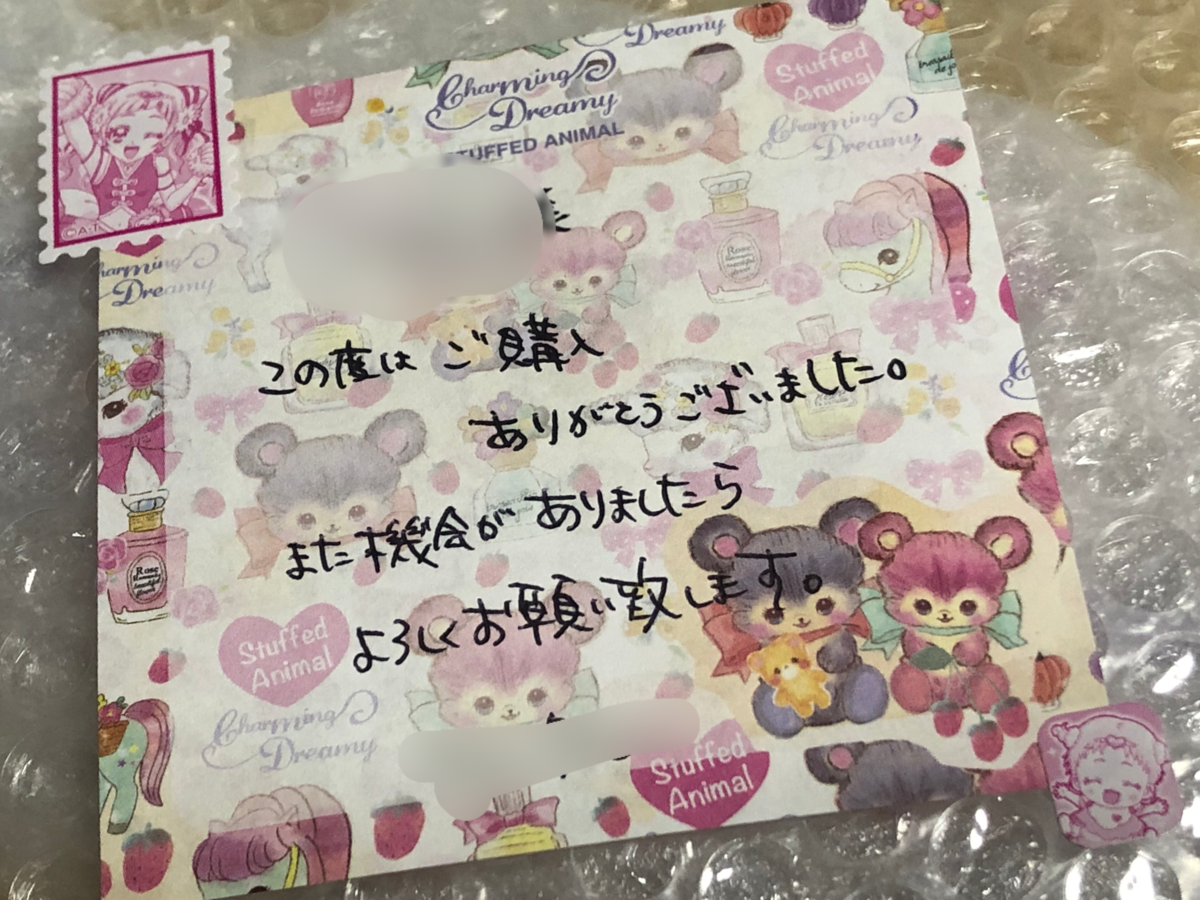 Dreamy
Charming
Dreamy
STUFFED ANIMAL
Stuffed
Animal
Charming
Dreamy
©A.T
様
Charming
Dreamy
Rose
この度は ご購入
ありがとうございました。
また機会が ありましたら
よろしくお願い致します。
Rose
Stuffed
Animal
Charming
Dreamy
Stuffed
Animal